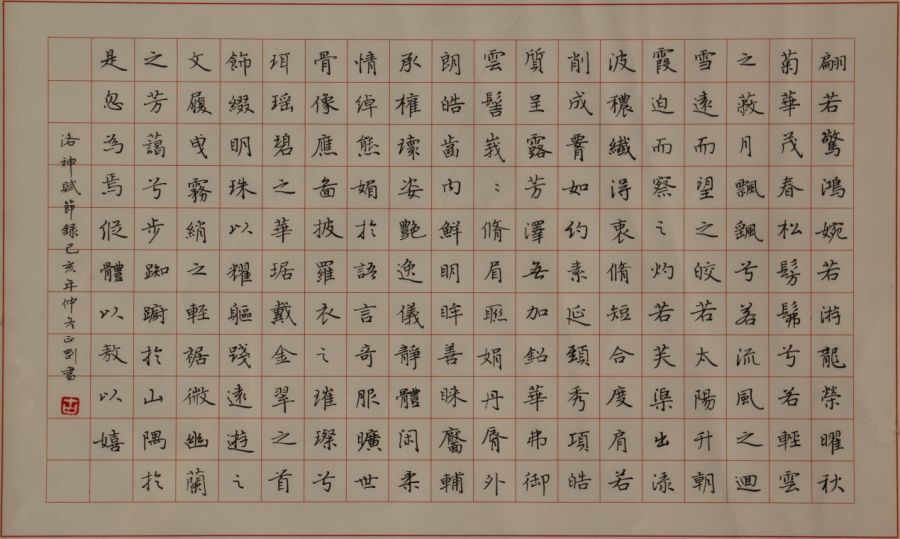 翩若驚鴻婉若游龍榮曜秋
菊華茂春松髣髴兮若輕雲
之蔽月飄颻兮若流風之迴
雪遠而望之皎若太陽升朝
霞迫而察之灼若芙渠出渌
波穠纖得衷脩短合度肩若
削成腰如約素延頸秀項皓
質呈露芳澤無加鉛華弗御
雲髻峩〻脩眉聯娟丹脣外
朗皓齒內鮮明眸善睞靨輔
承權瓌姿艷逸儀靜體閑柔
情綽態媚於語言奇服曠世
骨像應圖披羅衣之璀璨兮
珥瑶碧之華琚戴金翠之首
飾綴明珠以耀軀踐遠遊之
文履曳霧綃之輕裾微幽蘭
之芳藹兮步踟躕於山隅於
是忽焉縱體以敖以嬉
洛神賦節錄己亥年仲六正剛書